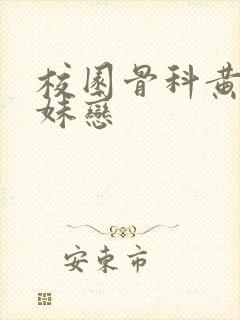 校園骨科黄
妹戀
安東市